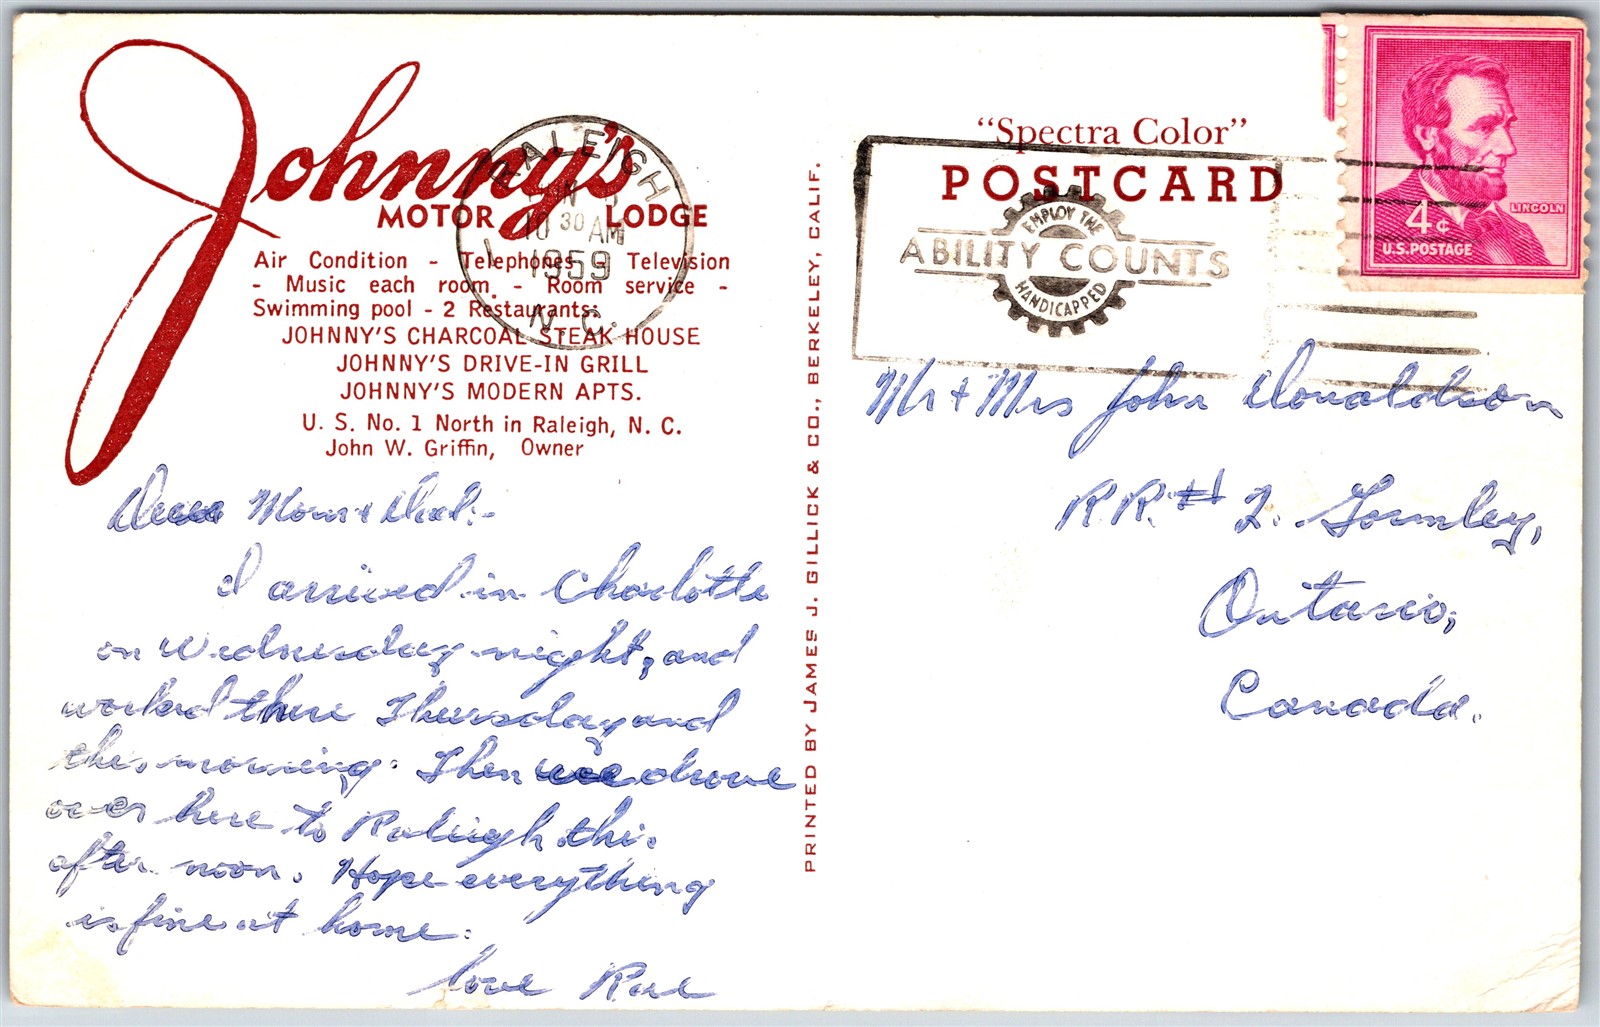 Johnny's
MOTOR LODGE
Air Condition - Telephones - Television
- Music each room - Room service -
Swimming pool - 2 Restaurants:
JOHNNY'S CHARCOAL STEAK HOUSE
JOHNNY'S DRIVE-IN GRILL
JOHNNY'S MODERN APTS.
U. S. No. 1 North in Raleigh, N. C.
John W. Griffin, Owner
RALEIGH
10 30 AM
1959
N. C.
Dear Mom & Dad:-
I arrived in Charlotte
on Wednesday night, and
worked there Thursday and
this morning. Then we drove
over here to Raleigh this
after noon. Hope everything
is fine at home.
Love Rae
PRINTED BY JAMES J. GILLICK & CO., BERKELEY, CALIF.
"Spectra Color"
POSTCARD
EMPLOY THE
ABILITY COUNTS
HANDICAPPED
4¢
LINCOLN
U.S. POSTAGE
Mr & Mrs John Donaldson
R.R. # 2. Gormley,
Ontario,
Canada.